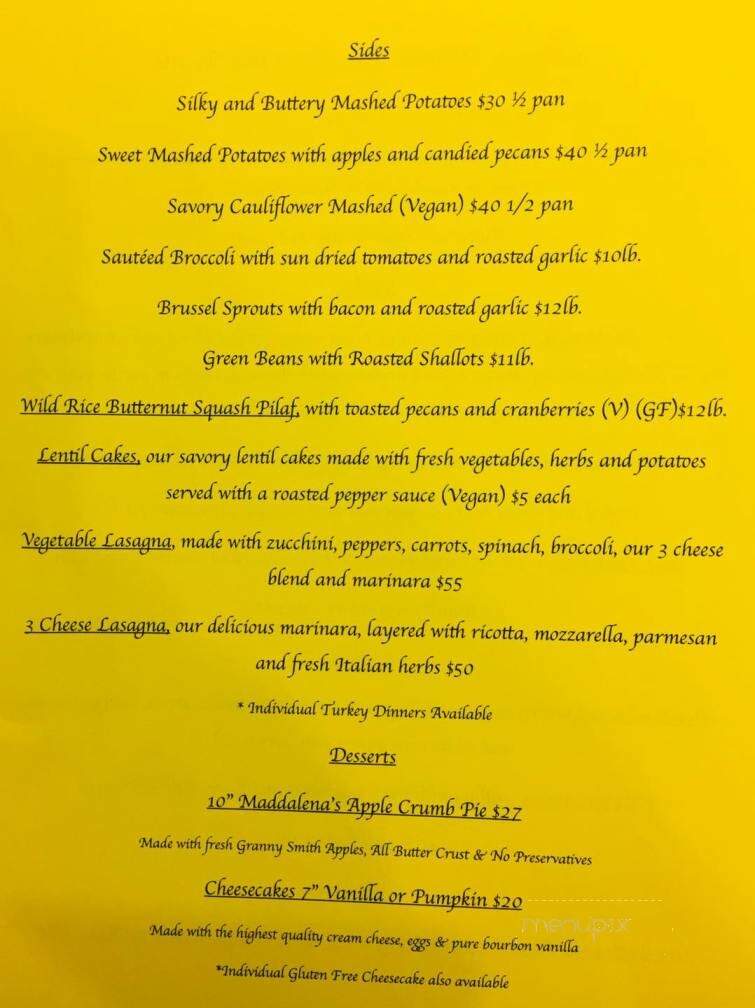 Sides
Silky and Buttery Mashed Potatoes $30 ½ pan
Sweet Mashed Potatoes with apples and candied pecans $40 ½ pan
Savory Cauliflower Mashed (Vegan) $40 1/2 pan
Sautéed Broccoli with sun dried tomatoes and roasted garlic $10lb.
Brussel Sprouts with bacon and roasted garlic $12lb.
Green Beans with Roasted Shallots $11lb.
Wild Rice Butternut Squash Pilaf, with toasted pecans and cranberries (V) (GF)$12lb.
Lentil Cakes, our savory lentil cakes made with fresh vegetables, herbs and potatoes
served with a roasted pepper sauce (Vegan) $5 each
Vegetable Lasagna, made with zucchini, peppers, carrots, spinach, broccoli, our 3 cheese
blend and marinara $55
3 Cheese Lasagna, our delicious marinara, layered with ricotta, mozzarella, parmesan
and fresh Italian herbs $50
* Individual Turkey Dinners Available
Desserts
10" Maddalena's Apple Crumb Pie $27
Made with fresh Granny Smith Apples, All Butter Crust & No Preservatives
Cheesecakes 7" Vanilla or Pumpkin $20
menupix
Made with the highest quality cream cheese, eggs & pure bourbon vanilla
*Individual Gluten Free Cheesecake also available